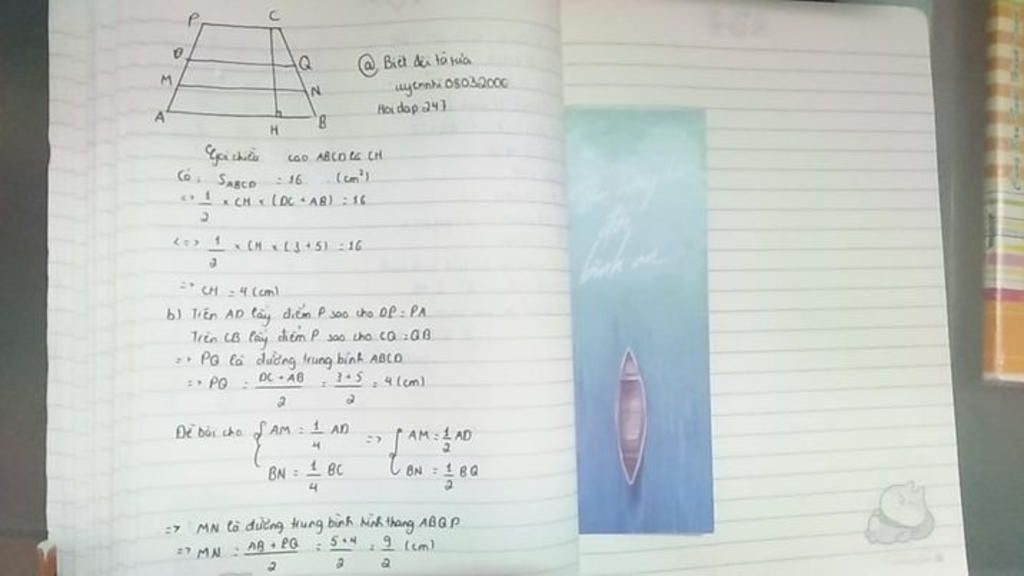 P C
D Q
M N
A H B
@ Biết đại tả rứa
uyennhi 08032000
Hoidap247
Gọi chiều cao ABCD là CH
Có: S ABCD = 16 (cm²)
<=> 1/2 × CH × (DC + AB) = 16
<=> 1/2 × CH × (3 + 5) = 16
=> CH = 4 (cm)
b) Trên AD lấy điểm P sao cho DP = PA
Trên CB lấy điểm P sao cho CQ = QB
=> PQ là đường trung bình ABCD
=> PQ = (DC + AB)/2 = (3 + 5)/2 = 4 (cm)
Đề bài cho { AM = 1/4 AD => { AM = 1/2 AD
BN = 1/4 BC BN = 1/2 BQ
=> MN là đường trung bình hình thang ABQP
=> MN = (AB + PQ)/2 = (5 + 4)/2 = 9/2 (cm)
bình an